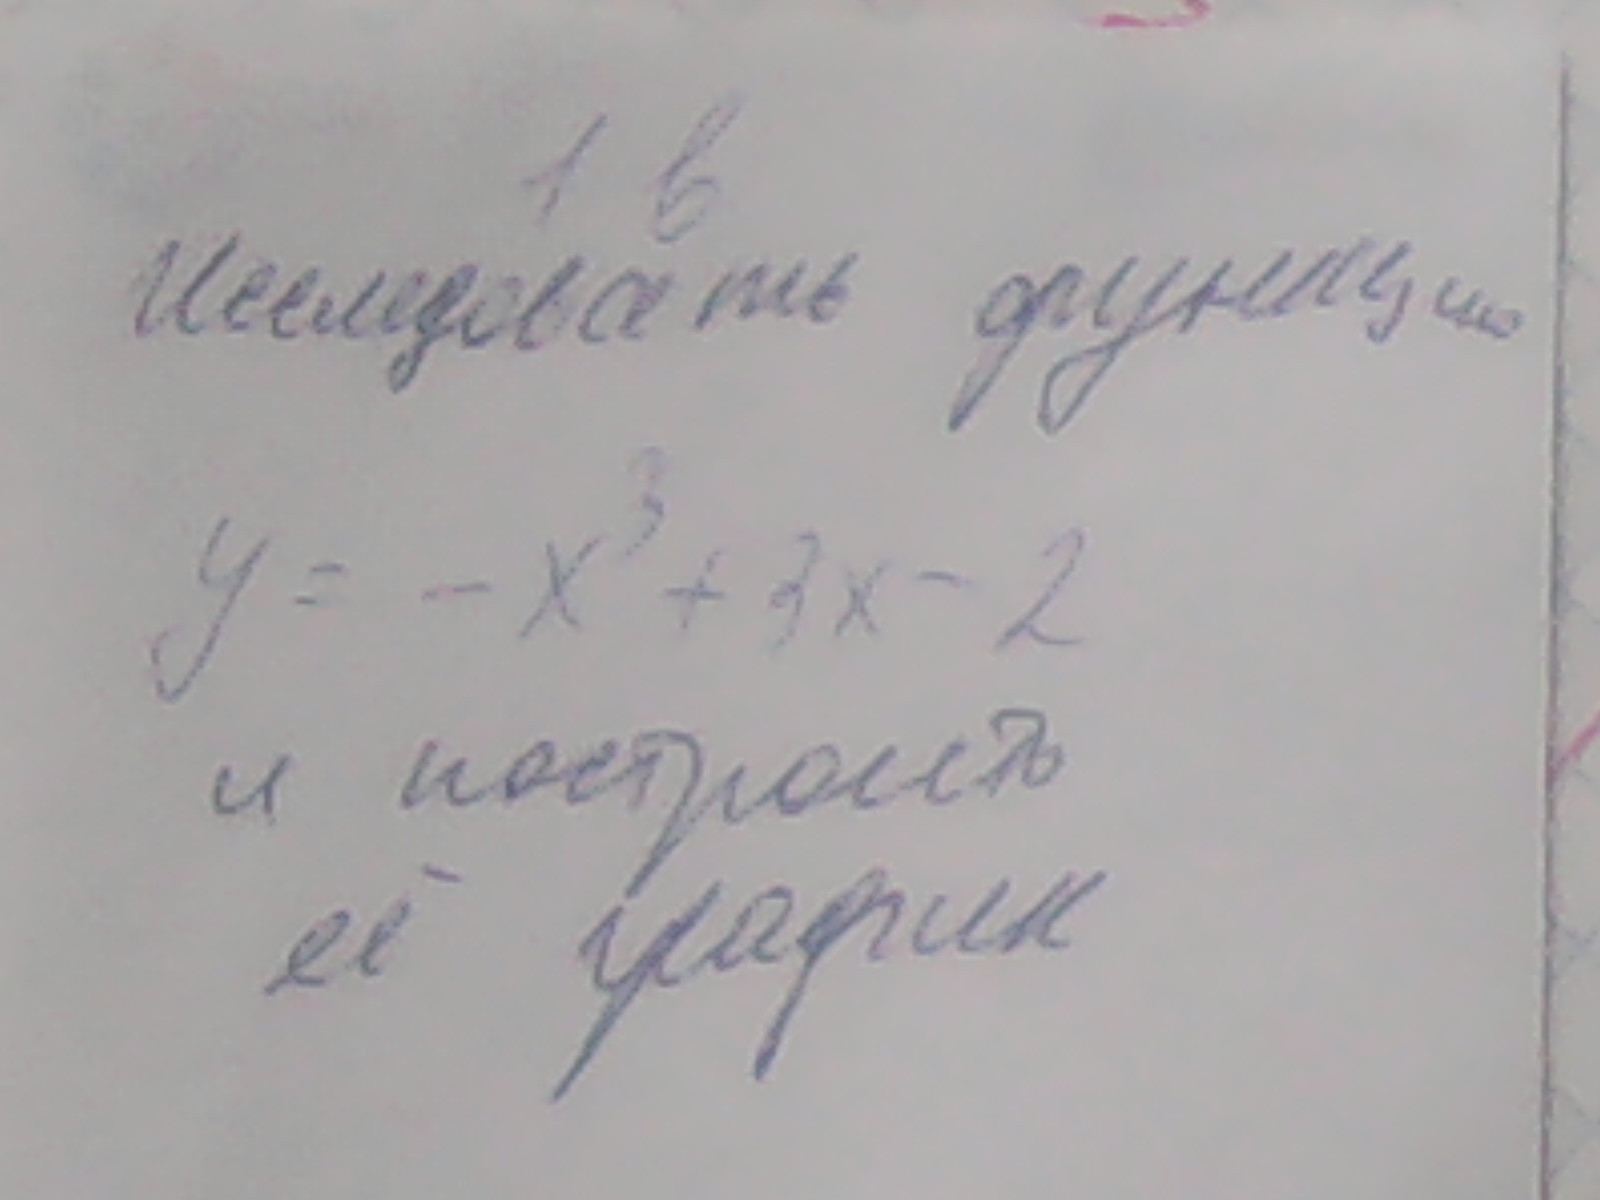 1 в
Исследовать функцию
y = -x³ + 3x - 2
и построить
её график